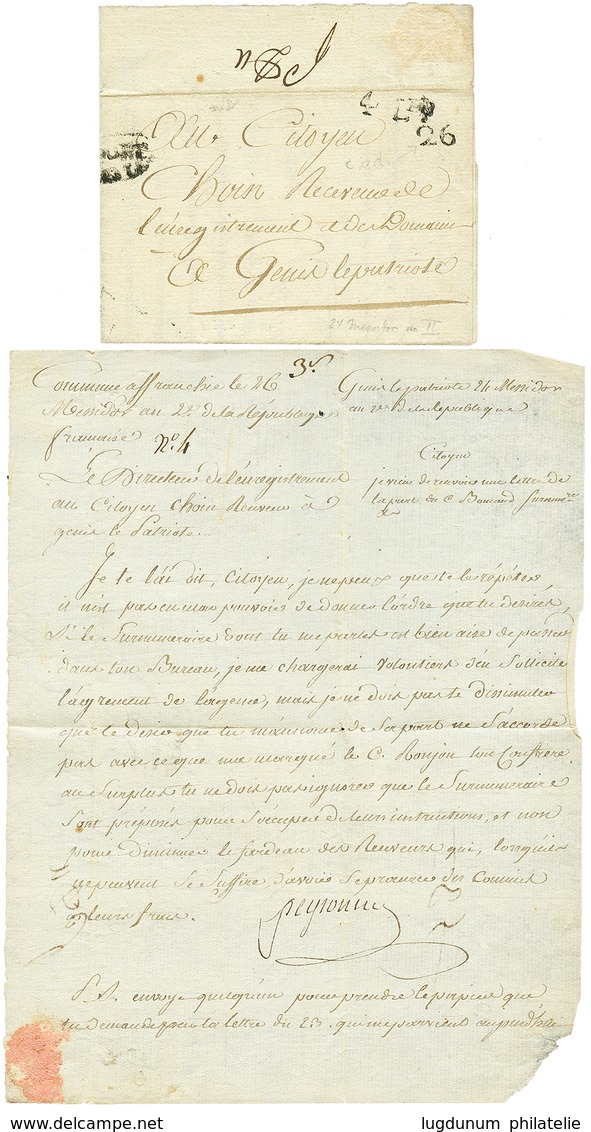 Au Citoyen
Choin Receveur de
l'enregistrement et des Domaines
A Genis le patriote
26
24 Messidor an II
3e.
Commune affranchie le 26
Messidor an 2e. de la République
française
No. 4
Genis le patriote 24 Messidor
an 2e de la Republique
Citoyen
je viens de recevoir une lettre de
la part du C. Boucaud surnumre
&a
Le Directeur de l'enregistrement
au Citoyen Choin Receveur à
genis le Patriote.
Je te l'ai dit, Citoyen, je ne peux que te le répéter,
il n'est pas en mon pouvoir de donner l'ordre que tu desires,
Si le Surnumeraire dont tu me parles est bien aise de passer
dans ton Bureau, je me chargerai volontiers d'en solliciter
l'agrement de l'agence, mais je ne dois pas te dissimuler
que le desir que tu m'annonce de sa part ne s'accorde
pas avec ce que m'a marqué le C. Ronjon ton Confrère
au Surplus tu ne dois pas ignorer que les Surnumeraire
sont préposés pour s'occuper de leur instructions, et non
pour diminuer le fardeau des Receveurs qui, lorsqu'ils
ne peuvent se suffire, d'avoir se procurer des Commis
a leurs frais.
Peyronny
P.S. envoye quelqu'un pour prendre le papier que
tu demandes par ta lettre du 23. qui me parvient aujourd'hui
www.delcampe.net
lugdunum philatelie